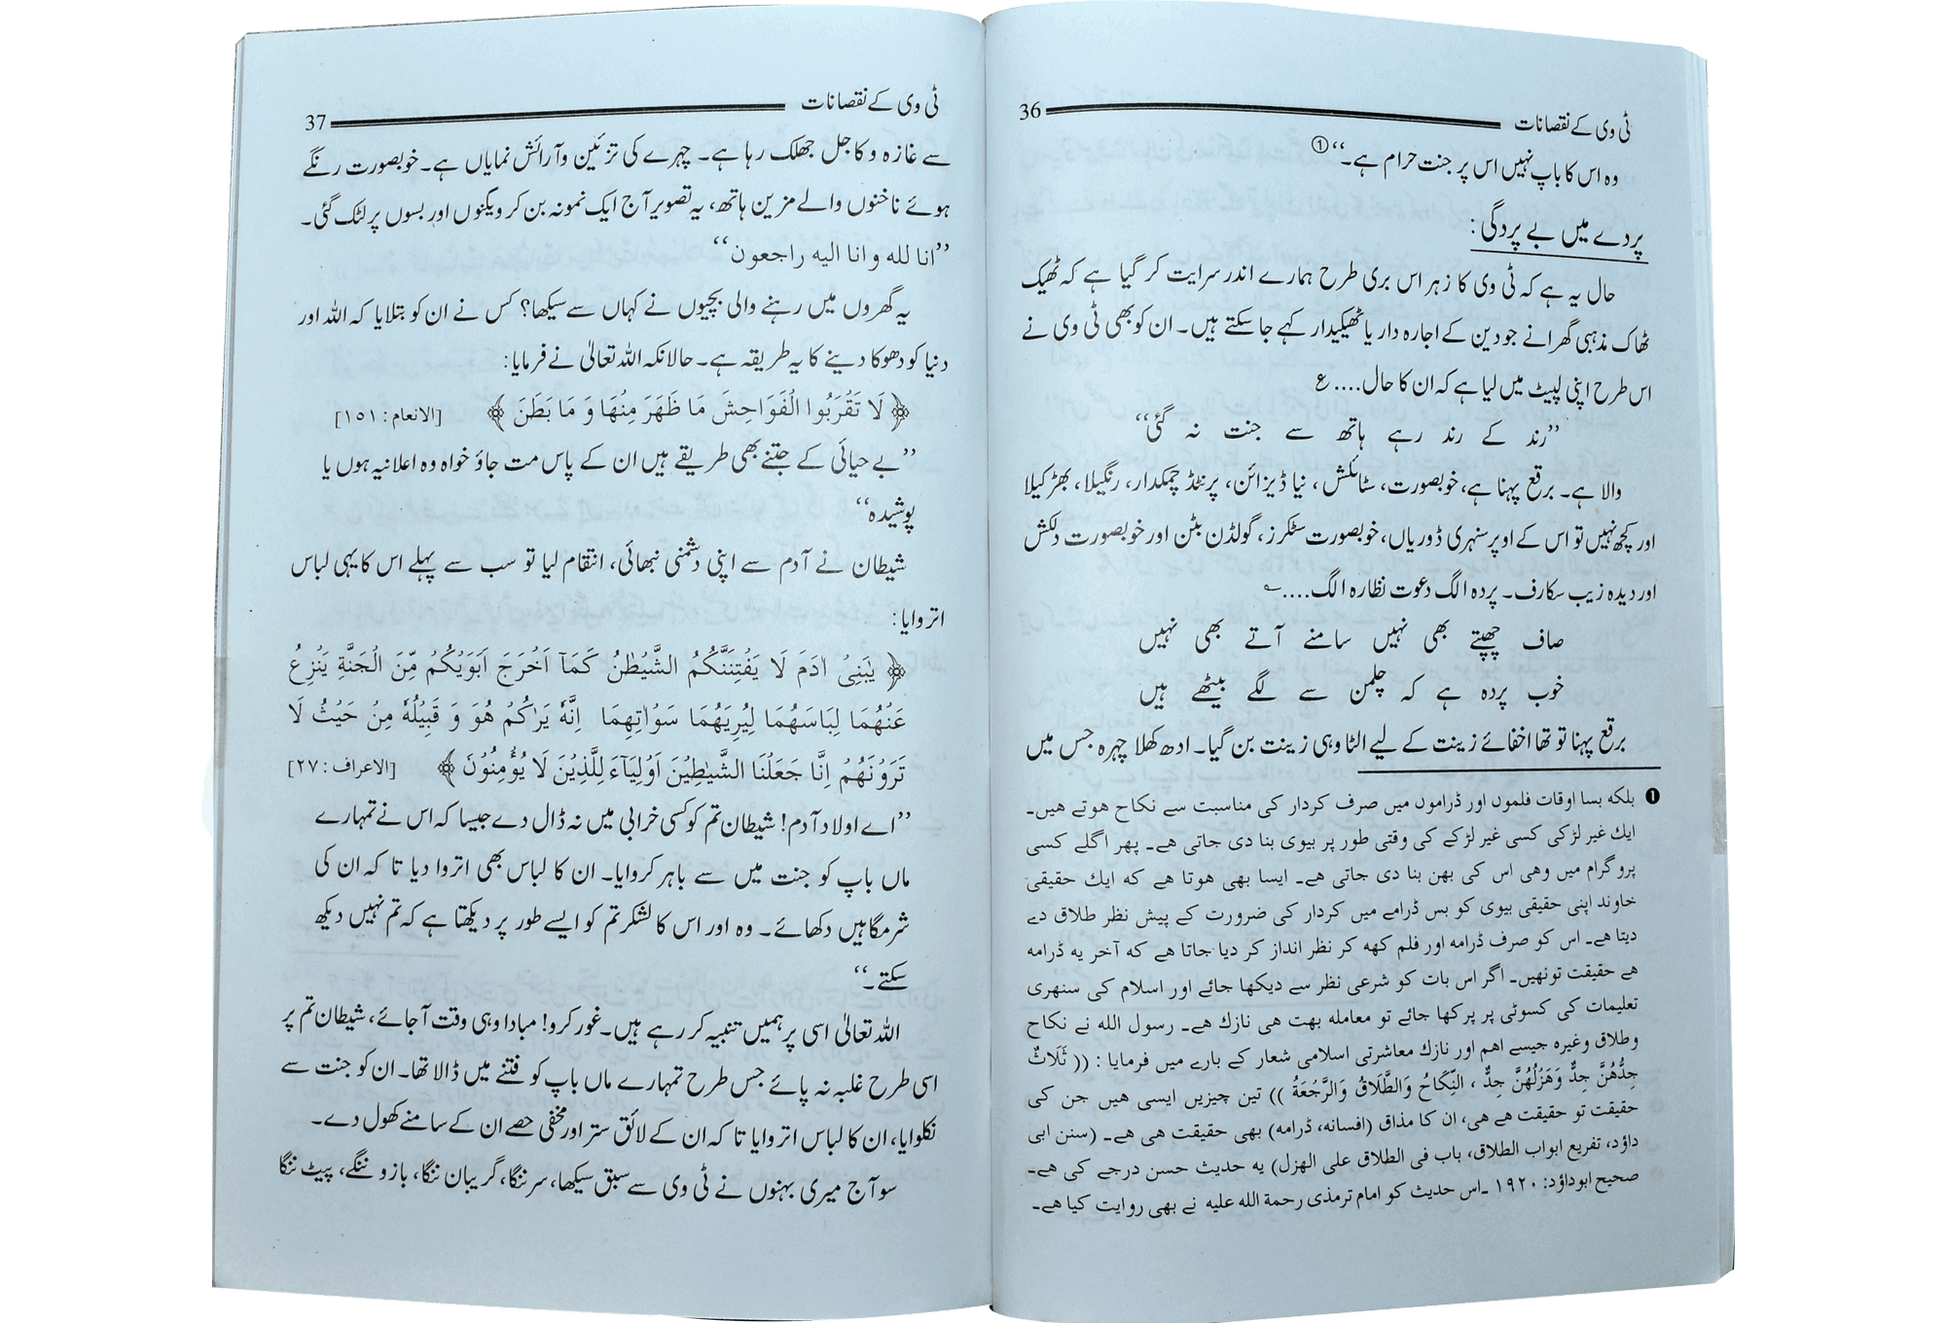 ٹی وی کے نقصانات 36
وہ اس کا باپ نہیں اس پر جنت حرام ہے۔‘‘ ①
پردے میں بے پردگی:
حال یہ ہے کہ ٹی وی کا زہر اس بری طرح ہمارے اندر سرایت کر گیا ہے کہ ٹھیک
ٹھاک مذہبی گھرانے جو دین کے اجارہ دار یا ٹھیکیدار کہے جا سکتے ہیں۔ ان کو بھی ٹی وی نے
اس طرح اپنی لپیٹ میں لیا ہے کہ ان کا حال.... ع
’’رند کے رند رہے ہاتھ سے جنت نہ گئی‘‘
والا ہے۔ برقع پہنا ہے، خوبصورت، سٹائلش، نیا ڈیزائن، پرنٹڈ چمکدار، رنگیلا، بھڑکیلا
اور کچھ نہیں تو اس کے اوپر سنہری ڈوریاں، خوبصورت سٹکرز، گولڈن بٹن اور خوبصورت دلکش
اور دیدہ زیب سکارف۔ پردہ الگ دعوت نظارہ الگ....؎
صاف چھپتے بھی نہیں سامنے آتے بھی نہیں
خوب پردہ ہے کہ چلمن سے لگے بیٹھے ہیں
برقع پہنا تو تھا اخفائے زینت کے لیے الٹا وہی زینت بن گیا۔ ادھ کھلا چہرہ جس میں
❶ بلکہ بسا اوقات فلموں اور ڈراموں میں صرف کردار کی مناسبت سے نکاح ہوتے ہیں۔
ایك غیر لڑکی کسی غیر لڑکے کی وقتی طور پر بیوی بنا دی جاتی ہے۔ پھر اگلے کسی
پروگرام میں وہی اس کی بہن بنا دی جاتی ہے۔ ایسا بھی ہوتا ہے کہ ایك حقیقی
خاوند اپنی حقیقی بیوی کو بس ڈرامے میں کردار کی ضرورت کے پیش نظر طلاق دے
دیتا ہے۔ اس کو صرف ڈرامہ اور فلم کہہ کر نظر انداز کر دیا جاتا ہے کہ آخر یہ ڈرامہ
ہے حقیقت تونہیں۔ اگر اس بات کو شرعی نظر سے دیکھا جائے اور اسلام کی سنہری
تعلیمات کی کسوٹی پر پرکھا جائے تو معاملہ بہت ہی نازك ہے۔ رسول اللہ نے نکاح
وطلاق وغیرہ جیسے اہم اور نازك معاشرتی اسلامی شعار کے بارے میں فرمایا : (( ثَلَاثٌ
جِدُّهُنَّ جِدٌّ وَهَزْلُهُنَّ جِدٌّ ، النِّكَاحُ وَالطَّلَاقُ وَالرَّجْعَةُ )) تین چیزیں ایسی ہیں جن کی
حقیقت تو حقیقت ہے ہی، ان کا مذاق (افسانہ، ڈرامہ) بھی حقیقت ہی ہے۔ (سنن ابی
داؤد، تفریع ابواب الطلاق، باب فی الطلاق علی الهزل) یہ حدیث حسن درجے کی ہے۔
صحیح ابوداؤد: ١٩٢٠ ۔اس حدیث کو امام ترمذی رحمة الله عليه نے بھی روایت کیا ہے۔
ٹی وی کے نقصانات 37
سے غازہ و کاجل جھلک رہا ہے۔ چہرے کی تزئین وآرائش نمایاں ہے۔ خوبصورت رنگے
ہوئے ناخنوں والے مزین ہاتھ، یہ تصویر آج ایک نمونہ بن کر ویگنوں اور بسوں پر لٹک گئی۔
’’انا لله و انا اليه راجعون‘‘
یہ گھروں میں رہنے والی بچیوں نے کہاں سے سیکھا؟ کس نے ان کو بتلایا کہ اللہ اور
دنیا کو دھوکا دینے کا یہ طریقہ ہے۔ حالانکہ اللہ تعالیٰ نے فرمایا:
﴿ لَا تَقْرَبُوا الْفَوَاحِشَ مَا ظَهَرَ مِنْهَا وَ مَا بَطَنَ ﴾ [الانعام : ١٥١]
’’بے حیائی کے جتنے بھی طریقے ہیں ان کے پاس مت جاؤ خواہ وہ اعلانیہ ہوں یا
پوشیدہ‘‘
شیطان نے آدم سے اپنی دشمنی نبھائی، انتقام لیا تو سب سے پہلے اس کا یہی لباس
اتروایا:
﴿ يٰبَنِىْ اٰدَمَ لَا يَفْتِنَنَّكُمُ الشَّيْطٰنُ كَمَآ اَخْرَجَ اَبَوَيْكُمْ مِّنَ الْجَنَّةِ يَنْزِعُ
عَنْهُمَا لِبَاسَهُمَا لِيُرِيَهُمَا سَوْاٰتِهِمَا اِنَّهٗ يَرٰكُمْ هُوَ وَ قَبِيْلُهٗ مِنْ حَيْثُ لَا
تَرَوْنَهُمْ اِنَّا جَعَلْنَا الشَّيٰطِيْنَ اَوْلِيَآءَ لِلَّذِيْنَ لَا يُؤْمِنُوْنَ ﴾ [الاعراف : ٢٧]
’’اے اولاد آدم! شیطان تم کو کسی خرابی میں نہ ڈال دے جیسا کہ اس نے تمہارے
ماں باپ کو جنت میں سے باہر کروایا۔ ان کا لباس بھی اتروا دیا تا کہ ان کی
شرمگاہیں دکھائے۔ وہ اور اس کا لشکر تم کو ایسے طور پر دیکھتا ہے کہ تم نہیں دیکھ
سکتے۔‘‘
اللہ تعالیٰ اسی پر ہمیں تنبیہ کر رہے ہیں۔ غور کرو! مبادا وہی وقت آ جائے، شیطان تم پر
اسی طرح غلبہ نہ پائے جس طرح تمہارے ماں باپ کو فتنے میں ڈالا تھا۔ ان کو جنت سے
نکلوایا، ان کا لباس اتروایا تا کہ ان کے لائق ستر اور مخفی حصے ان کے سامنے کھول دے۔
سو آج میری بہنوں نے ٹی وی سے سبق سیکھا، سر ننگا، گریبان ننگا، بازو ننگے، پیٹ ننگا